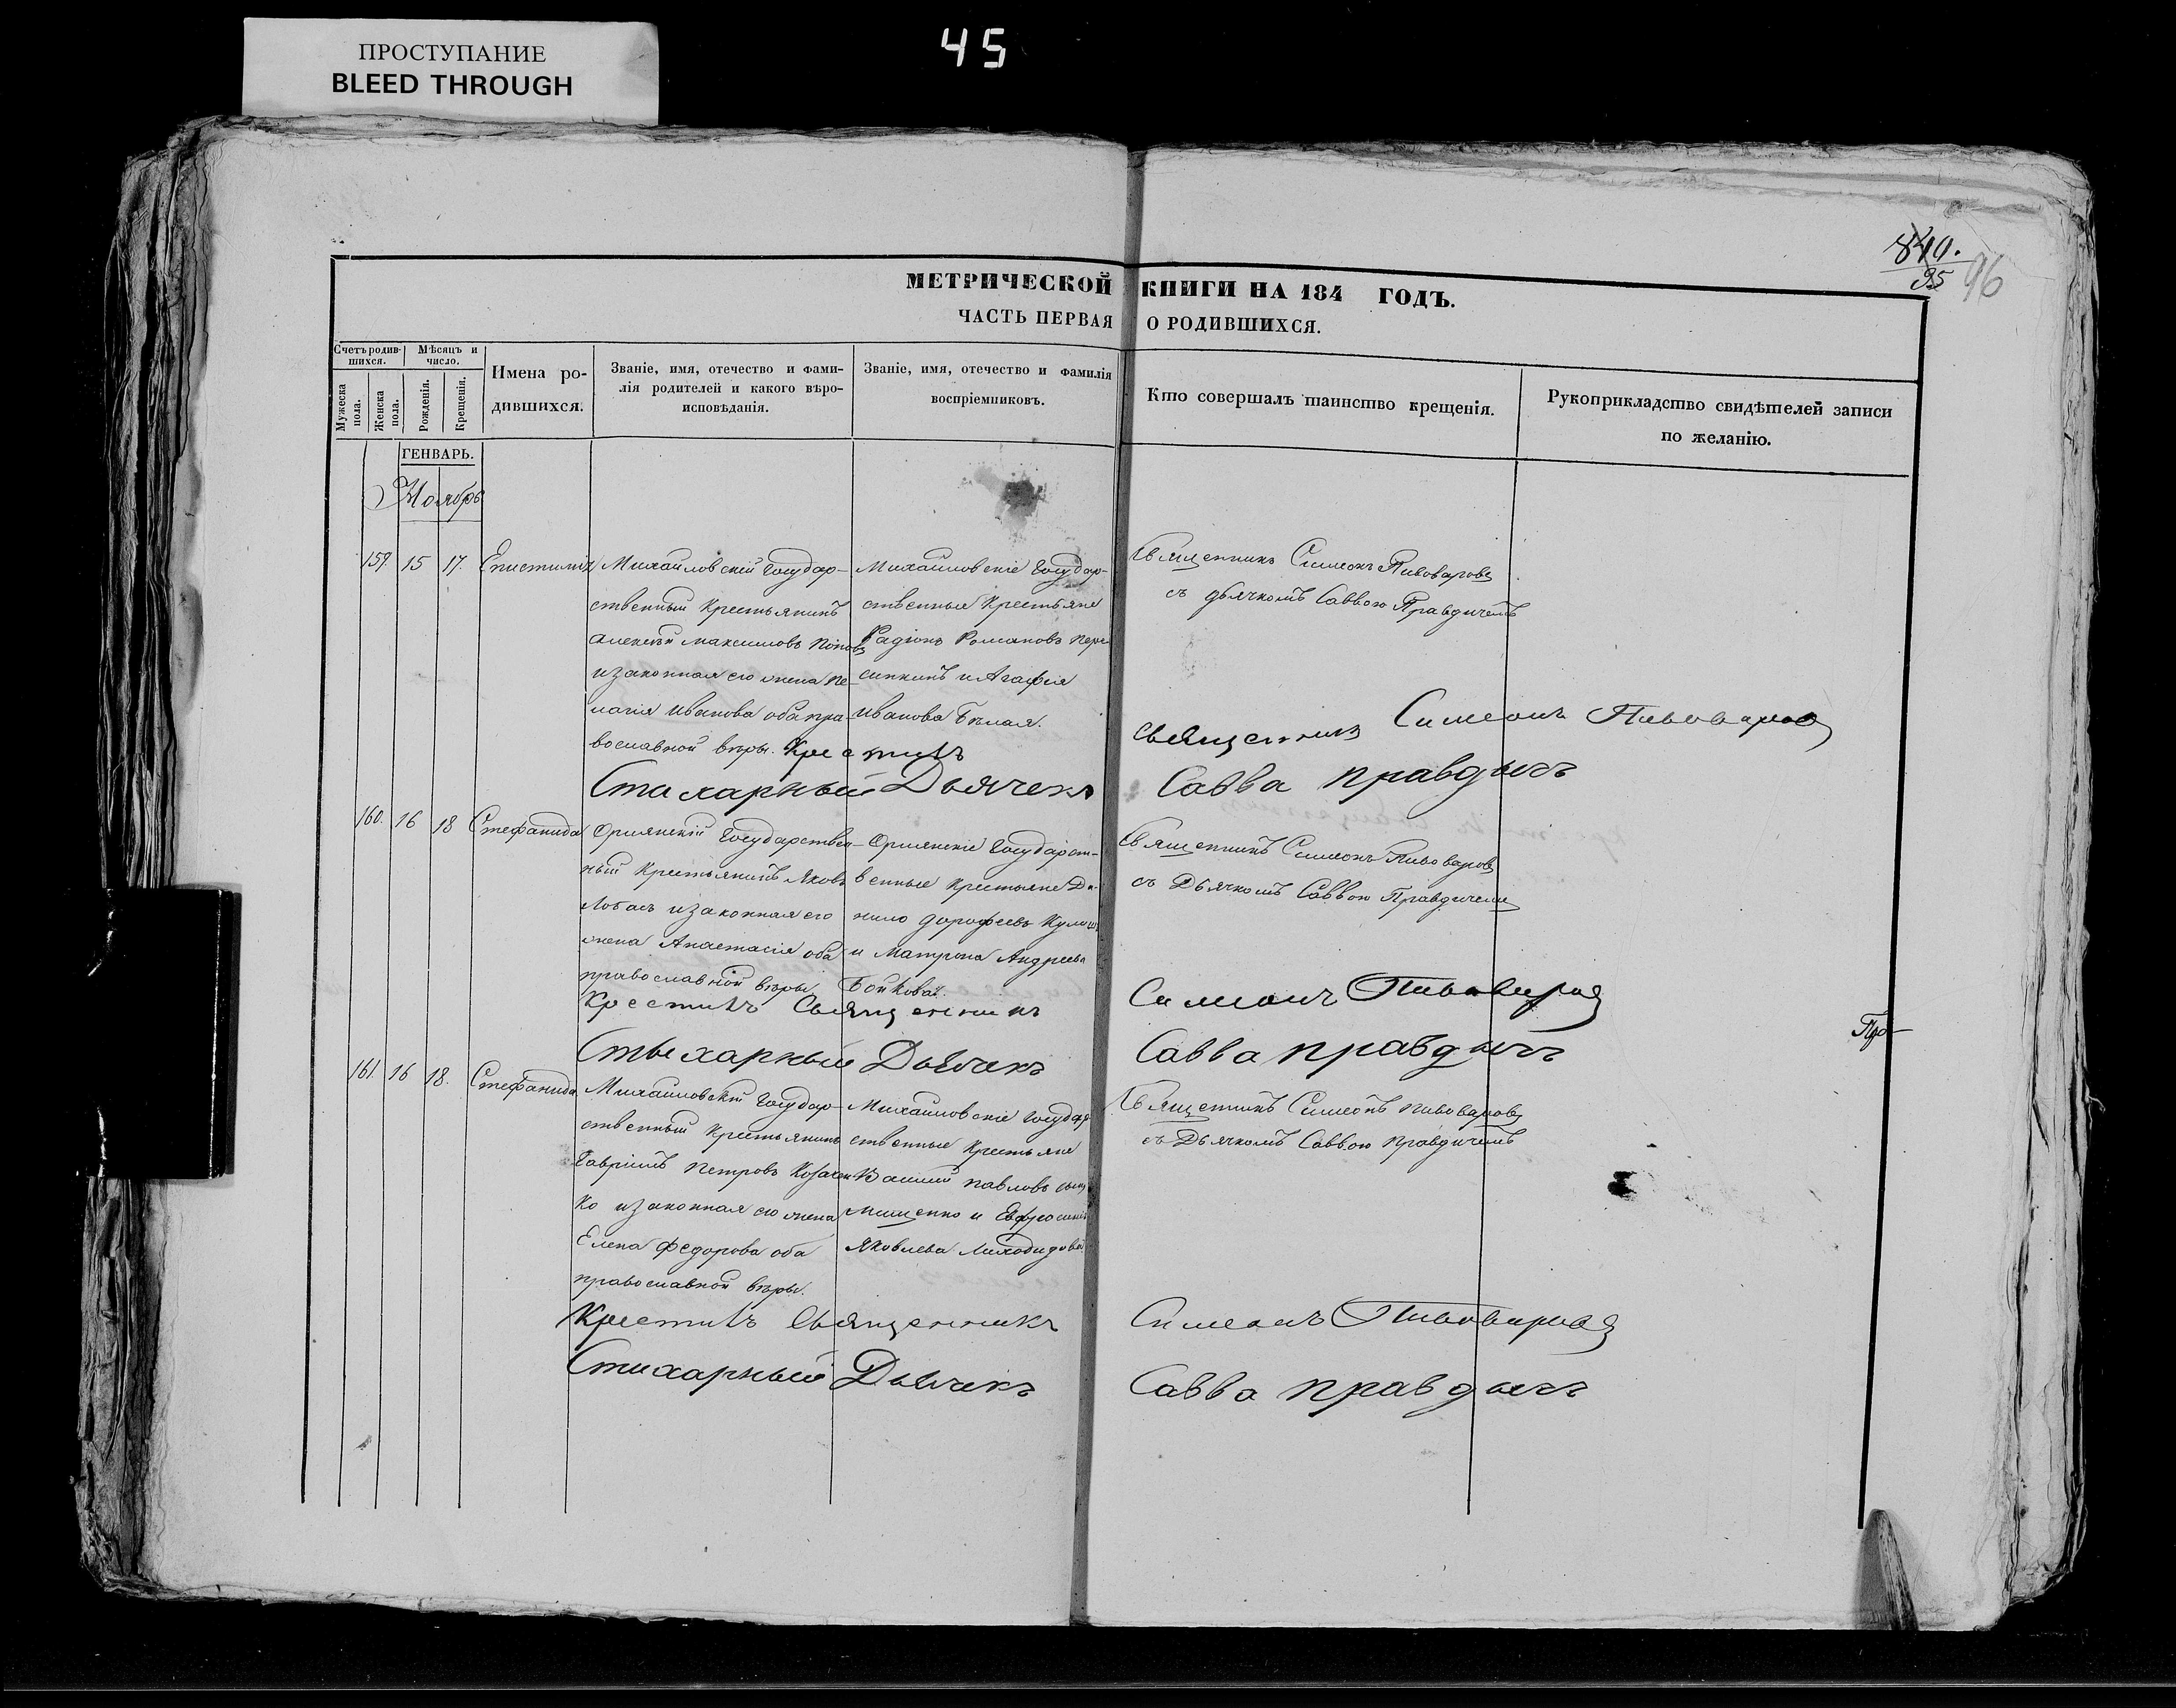 ПРОСТУПАНИЕ
BLEED THROUGH
45
840.
95
96
МЕТРИЧЕСКОЙ КНИГИ НА 184 ГОДЪ.
ЧАСТЬ ПЕРВАЯ О РОДИВШИХСЯ.
Счетъ родив-
шихся.
Мужеска
пола.
Женска
пола.
Мѣсяцъ и
число.
Рожденія.
Крещенія.
Имена ро-
дившихся.
Званіе, имя, отечество и фами-
лія родителей и какого вѣро-
исповѣданія.
Званіе, имя, отечество и фамилія
воспріемниковъ.
Кто совершалъ таинство крещенія.
Рукоприкладство свидѣтелей записи
по желанію.
ГЕНВАРЬ.
Ноябрь
159. 15 17. Епистимія
Михайловскій Государ-
ственный крестьянинъ
Алексѣй Максимовъ Поповъ
и законная его жена Пе-
лагія Иванова оба пра-
вославной вѣры.
Михайловскіе Государ-
ственные крестьяне
Радіонъ Романовъ
и Агафія
Иванова Бѣлая.
Священникъ Симеонъ Пивоваровъ
съ дьячкомъ Саввою Правдичемъ
Крестилъ священникъ Симеонъ Пивоваровъ
Стихарный Дьячекъ Савва Правдичъ
160. 16 18 Стефанида
Орлянскій Государствен-
ный крестьянинъ Яковъ
Лобасъ и законная его
жена Анастасія оба
православной вѣры
Орлянскіе Государст-
венные крестьяне Да-
нило Дорофеевъ
и Матрона Андреева
Бойкова.
Священникъ Симеонъ Пивоваровъ
съ Дьячкомъ Саввою Правдичемъ
Крестилъ Священникъ Симеонъ Пивоваровъ
Стыхарный Дьячекъ Савва Правдычъ
Пра-
161. 16 18. Стефанида
Михайловскій Государ-
ственный крестьянинъ
Гавріилъ Петровъ Козачен-
ко и законная его жена
Елена Федорова оба
православной вѣры.
Михайловскіе Государ-
ственные крестьяне
Василій Павловъ сынъ
Мищенко и Евфросинія
Яковлева
Священникъ Симеонъ Пивоваровъ
съ Дьячкомъ Саввою Правдичемъ
Крестилъ Священникъ Симеонъ Пивоваровъ
Стихарный Дьячекъ Савва Правдычъ